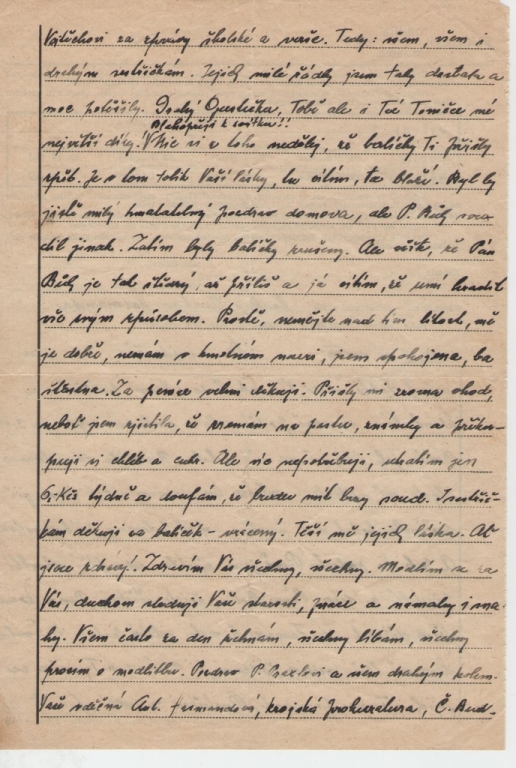 Vojtěchovi za zprávy školské a verše. Tedy: všem, všem i
drahým sestřičkám. Jejich milé řádky jsem taky dostala a
moc potěšily. Drahý Quastička, Tobě ale i Té Toničce mé
Blahopřeji k svátku!!
největší díky! Nic si z toho nedělej, že balíčky Ti přišly
zpět. Je v tom tolik Vaší lásky, tu cítím, ta blaží. Byl by
jistě milý hmatatelný pozdrav domova, ale P. Bůh rozhodil
jinak. Zatím byly balíčky zrušeny. Ale víte, že Pán
Bůh je tak štědrý až příliš a já cítím, že umí hradit
vše svým způsobem. Prostě, nemějte nad tím lítost, mě
je dobře, nemám v hmotném nouzi, jsem spokojena, ba
šťastna. Za peníze velmi děkuji. Přišly mi zrovna vhod,
neboť jsem zjistila, že nemám na pastu, známky a přiku-
puji si chléb a cukr. Ale nic nepotřebuji, utratím jen
6,- Kčs týdně a doufám, že budu mít brzy soud. I sestřič-
kám děkuji za balíček - vrácený. Těší mě jejich láska. Ať
jsou zdrávy! Zdravím Vás všechny, všechny. Modlím se za
Vás, duchem sleduji Vaše starosti, práce a námahy i sna-
hy. Všem často za den žehnám, všechny líbám, všechny
prosím o modlitbu. Pozdrav P. a všem drahým kolem.
Vaše vděčná Ant. Hasmandová, krajská prokuratura, Č. Bud.